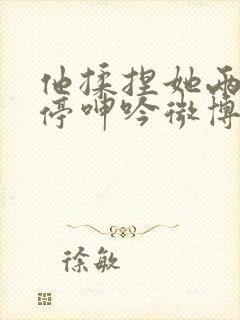 他揉捏她两
停呻吟微博
徐敏